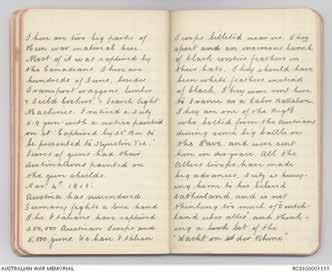 There are two big parks of
Hun war material here.
Most of it was captured by
the Canadians. There are
hundreds of Guns, besides
Transport waggons, limbers
& Field Cookers & Search Light
Machines. I noticed a
5.9 gun with a notice painted
on it "Captured by 21st Bn to
be presented to Vic."
Scores of guns had their
destinations painted on
the gun shields.
Nov. 4th 1918.
Austria has surrendered
Germany fights a lone hand
The Italians have captured
300,000 Austrian troops and
5,000 guns. We have Italian
Troops billeted near us. They
sport an enormous bunch
of black rooster feathers in
their hats. They should have
been white feathers instead
of black. They were sent here
to France as a Labor Battalion.
They are one of the Regts
who bolted from the Austrians
during some big battle on
the Piave, and were sent
here in disgrace. All the
Allies troops have made
big advances. Fritz is hurry-
ing home to his beloved
Fatherland, and is not
thinking too much of "Deutch-
land uber alles" and think-
ing a whole lot of the
"Wacht on der Rhine"
AUSTRALIAN WAR MEMORIAL
RCDIG0003157